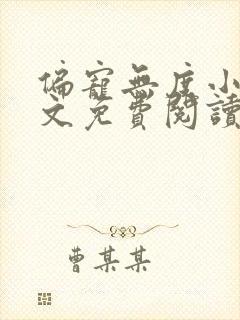 偏寵無度小
文免費閱讀
曹某某